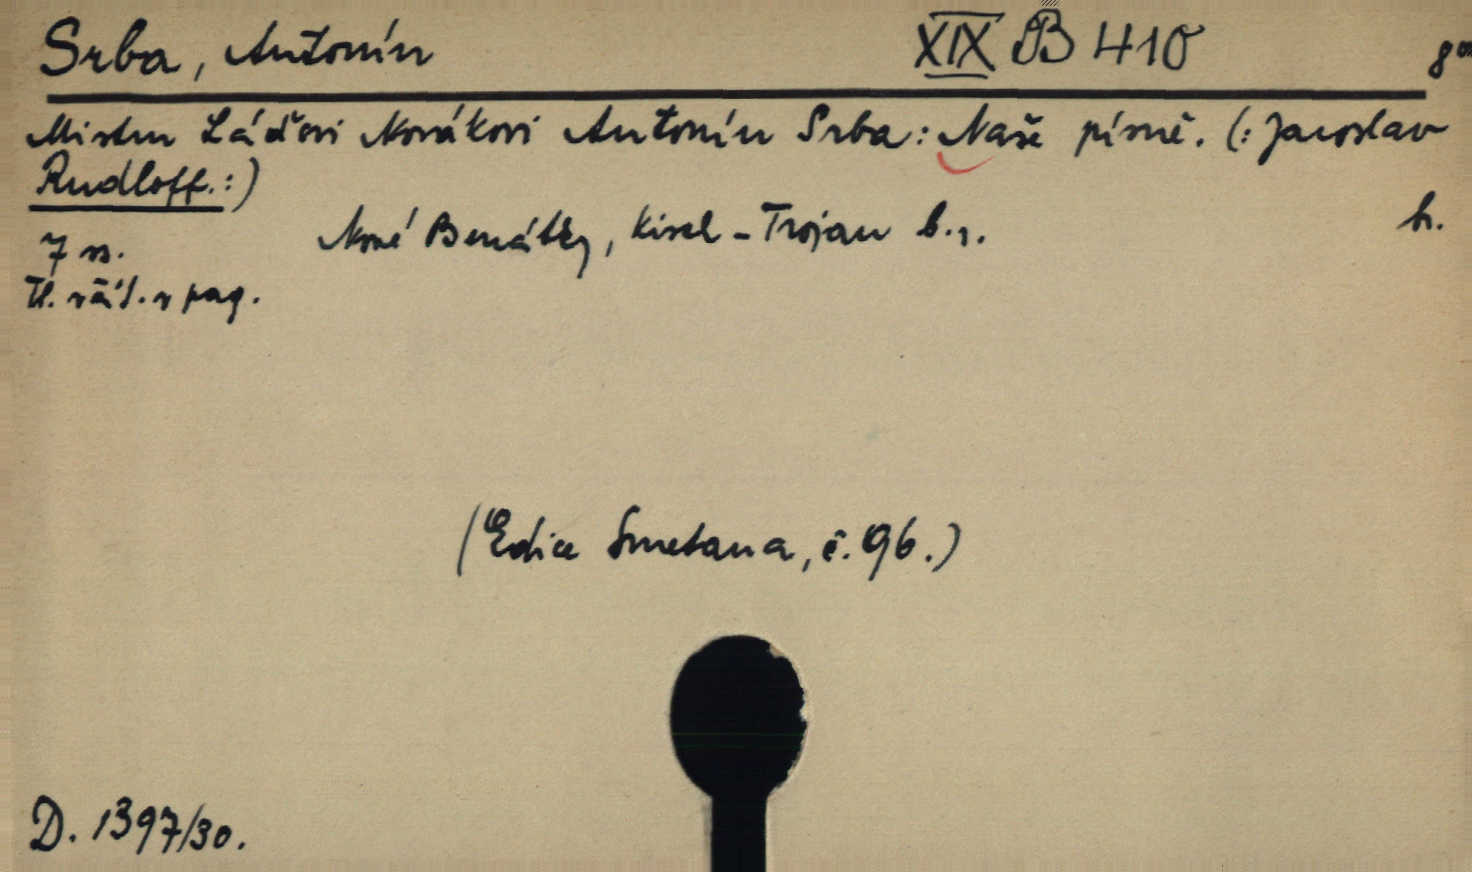 Srba, Antonín XIX B 410 8°
Mistru Láďovi Novákovi Antonín Srba: Naše písně. (: Jaroslav
Rudloff.:)
Nové Benátky, Kisel-Trojan b.r. h.
7 ss.
Tl. váž. v pag.
(Edice Smetana, č. 96.)
D. 1397/30.